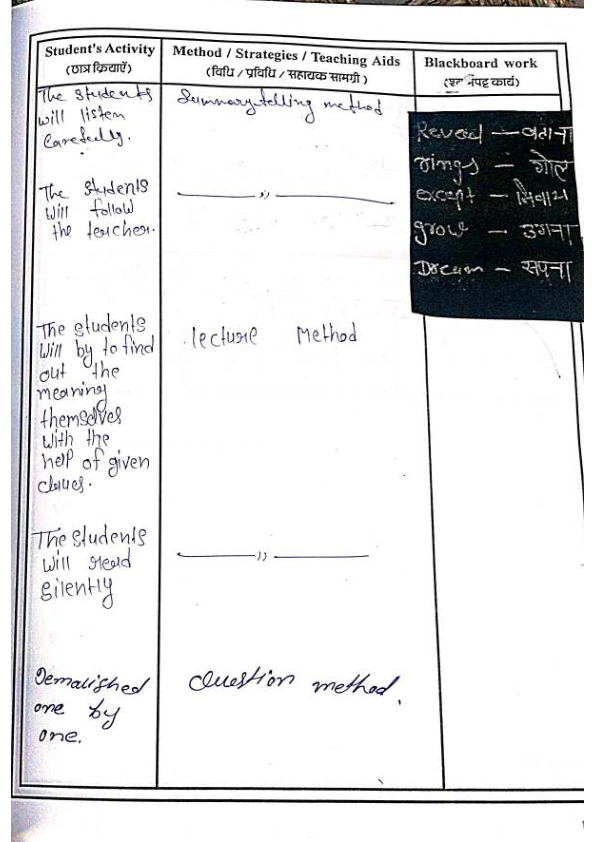 Student's Activity
(छात्र क्रियाऐं)
Method / Strategies / Teaching Aids
(विधि / प्रविधि / सहायक सामग्री )
Blackboard work
कार्य)
The students
will listen
Carefully.
Summary telling method
Reveal — बताना
rings — गोल
except — सिवाय
grow — उगना
Dream — सपना
The students
will follow
the teacher.
— " —
The students
will by to find
out the
meaning
themselves
with the
help of given
clues.
lecture Method
The students
will read
silently
— " —
Demalished
one by
one.
Question method.